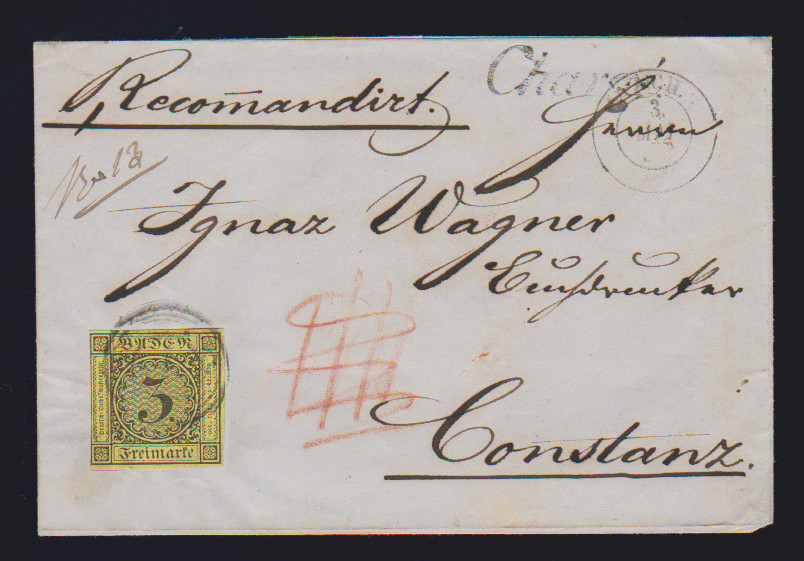 Recom̄andirt.
Charge
3
Herrn
No 13
Ignaz Wagner
Buchdrucker
BADEN
3
Freimarke
Constanz.